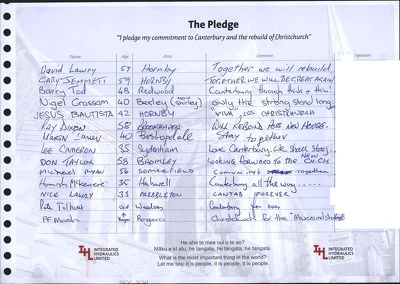 The Pledge
"I pledge my commitment to Canterbury and the rebuild of Christchurch"
Name Age Area Comment Signature
David Lawry 57 Hornby Together we will rebuild
GARY SEMMETT 59 HORNBY TOGETHER WE WILL BE GREAT AGAIN
Barry Tod 48 Redwood Canterbury through thick & thin!
Nigel Crossam 40 Bexley only the strong stand long
JESUS BAUTISTA 42 HORNBY "VIVA" CHRISTCHURCH
Ray Dixon 58 WILL REBUILD HOUSE.
40 Bishopdale Stay together
LEE CAMERON 35 Sydenham Love Canterbury. We shall stay
DON TAYLOR 58 BROMLEY LOOKING FORWARD TO THE NEW CH.CH.
MICHAEL RYAN 56 SOMERFIELD together
Hamish 35 Halswell Canterbury all the way
NICK LAWRY 33 PREBBLETON CANTAB FOREVER
Pete Old Canterbury for ever
PF Rangiora Christchurch for the
INTEGRATED
HYDRAULICS
LIMITED
He aha te mea nui o te ao?
Māku e kī atu, he tangata, he tangata, he tangata
What is the most important thing in the world?
Let me say, it is people, it is people, it is people.
INTEGRATED
HYDRAULICS
LIMITED